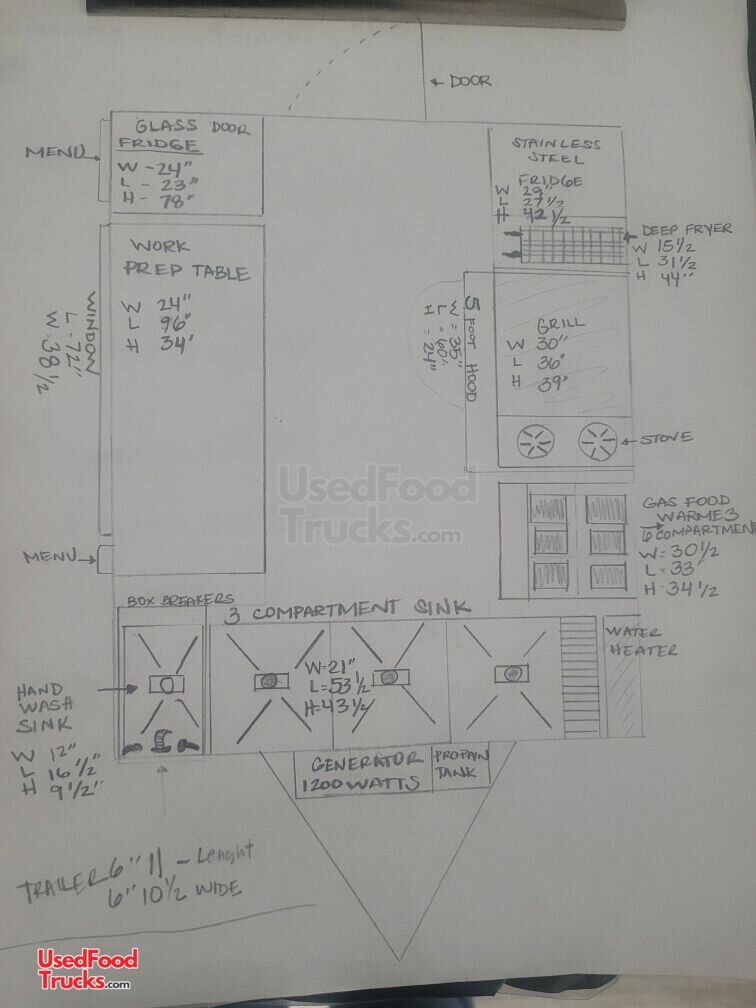 DOOR
GLASS DOOR
FRIDGE
W - 24"
L - 23"
H - 78"
MENU
STAINLESS
STEEL
FRIDGE
W 29"
L 27 1/2
H 42 1/2
DEEP FRYER
W 15 1/2
L 31 1/2
H 44"
WORK
PREP TABLE
W 24"
L 96"
H 34'
WINDOW
L = 72"
W = 38 1/2
5 FOOT HOOD
W = 35"
L = 60"
H = 24"
GRILL
W 30"
L 36"
H 39"
STOVE
UsedFood
Trucks.com
GAS FOOD
WARME3
6 COMPARTMENT
W = 30 1/2
L = 33"
H = 34 1/2
MENU
BOX BREAKERS
3 COMPARTMENT SINK
W=21"
L=53 1/2
H=43 1/2
WATER
HEATER
HAND
WASH
SINK
W 12"
L 16 1/2"
H 9 1/2"
GENERATOR
1200WATTS
PROPAIN
TANK
TRAILER 6" 11 - Lenght
6" 10 1/2 WIDE
UsedFood
Trucks.com